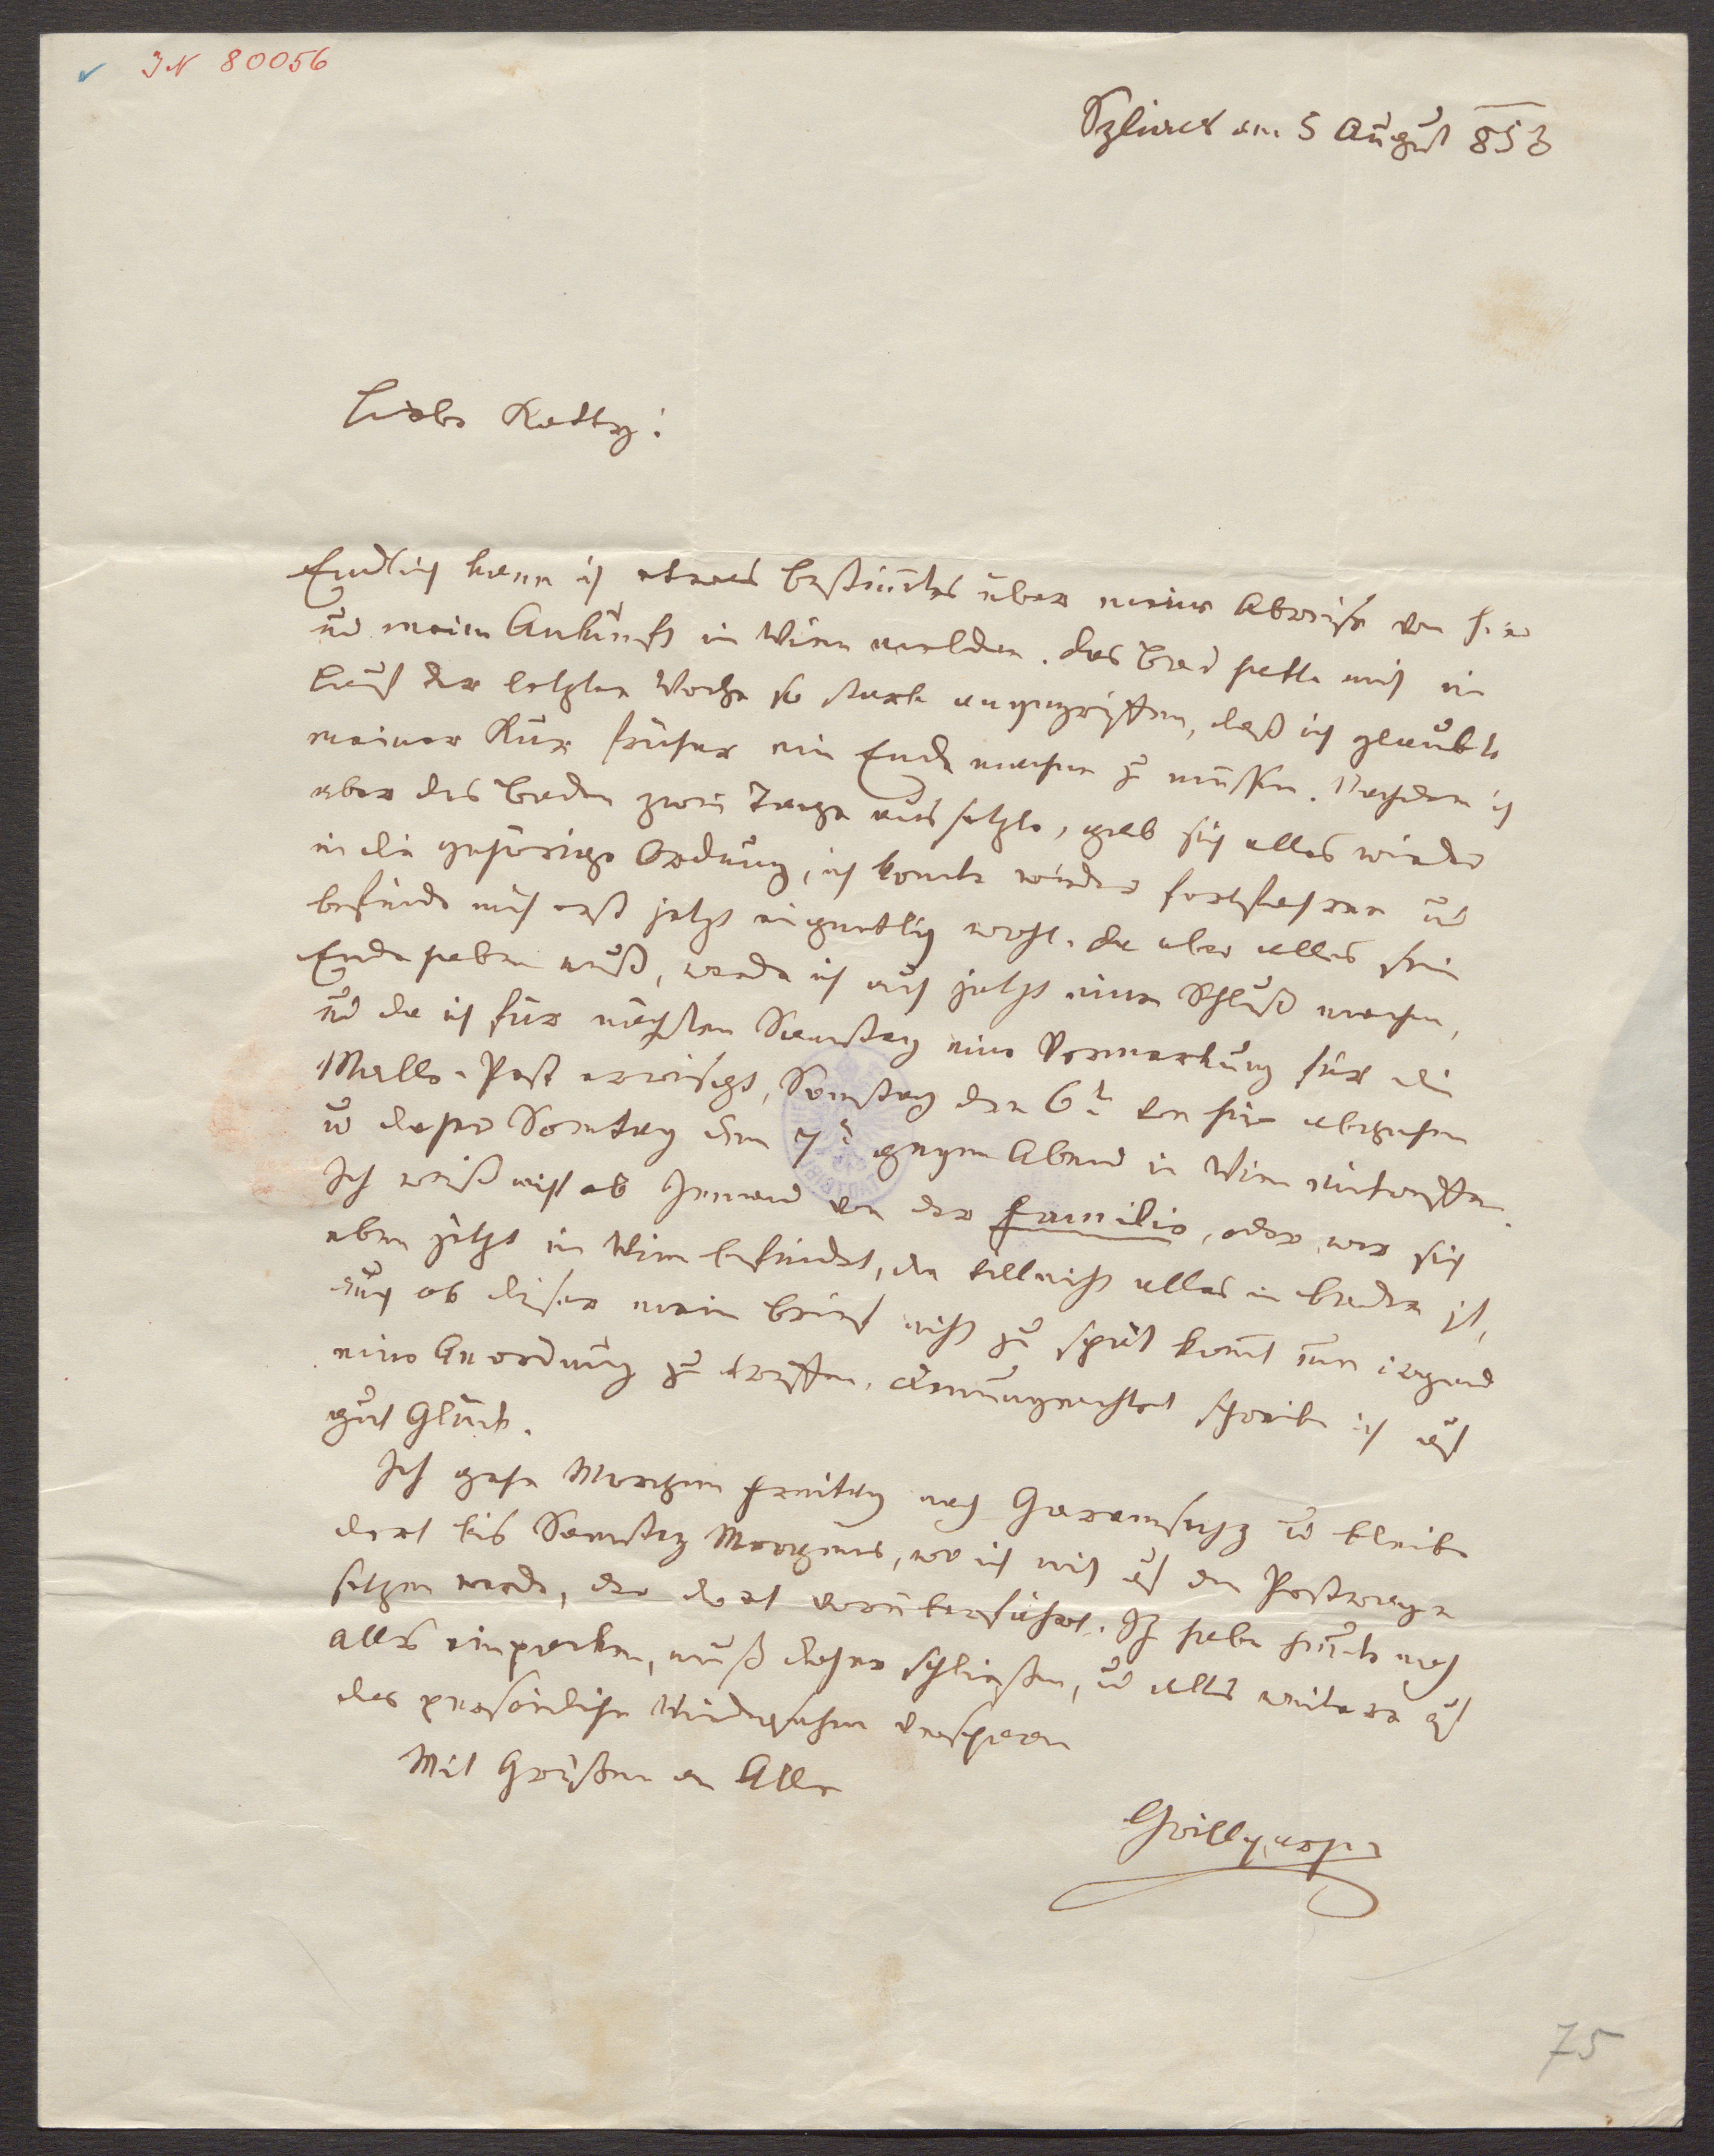 IN 80056
Szliacs am 5 August 853
Liebe Katty!
Endlich kann ich etwas bestim̄tes über meine Abreise von hier
und meine Ankunft in Wien melden. Das Bad hatte mich im
Lauf der letzten Woche so stark angegriffen, daß ich glaubte
meiner Kur früher ein Ende machen zu müssen. Nachdem ich
aber das Baden zwei Tage aussetzte, gab sich alles wieder
in die gehörige Ordnung, ich konnte wieder fortfahren und
befinde mich erst jetzt eigentlich wohl. Da aber alles sein
Ende haben muß, werde ich auch jetzt einen Schluß machen,
und da ich für nächsten Samstag eine Vormerkung für die
Malle-Post erwischt, Samstag den 6t von hier abgehen
u daher Sonntag den 7t gegen Abend in Wien eintreffen.
Ich weiß nicht ob Jemand von der Familie, oder wer sich
eben jetzt in Wien befindet, da vielleicht alles in Baden ist,
auch ob dieser mein Brief nicht zu spät kom̄t um irgend
eine Anordnung zu treffen, demungeachtet schreibe ich auf
gut Glück.
Ich gehe Morgen Freitag nach Garamsegz u bleibe
dort bis Samstag Morgens, wo ich mich auf den Postwagen
setzen werde, der dort vorüberfährt. Ich habe heute noch
alles einpacken, muß daher schließen, u alles weitere auf
das persönliche Wiedersehen versparen
Mit Grüßen an Alle
Grillparzer
75